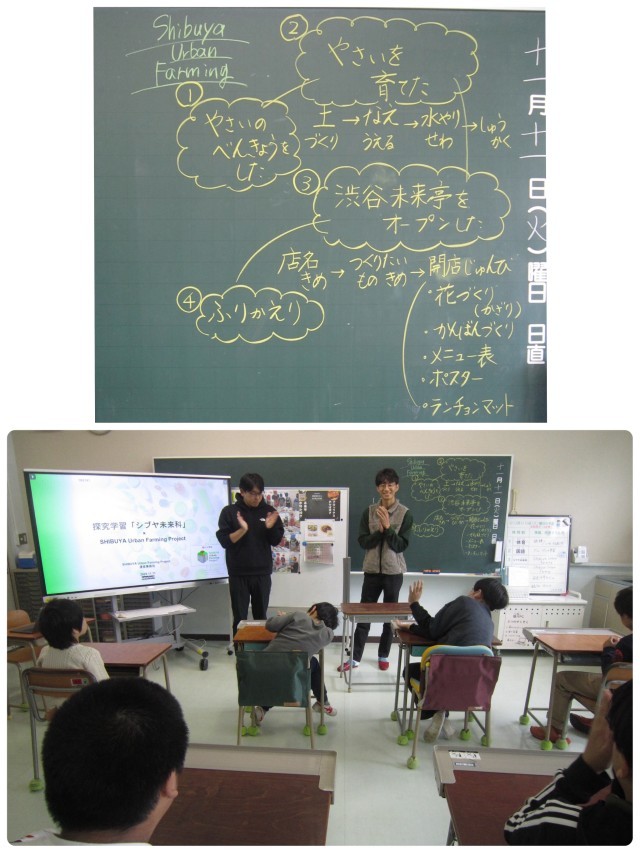 Shibuya
Urban
Farming
①
やさいの
べんきょうを
した
②
やさいを
育てた
土 → なえ → 水やり → しゅう
づくり うえる せわ かく
③
渋谷未来亭を
オープンした
店名 → つくりたい → 開店じゅんび
きめ もの きめ
・花づくり
(かざり)
・かんばんづくり
・メニュー表
・ポスター
・ランチョンマット
④
ふりかえり
十一月十一日(火)曜日 日直
探究学習「シブヤ未来科」
×
SHIBUYA Urban Farming Project